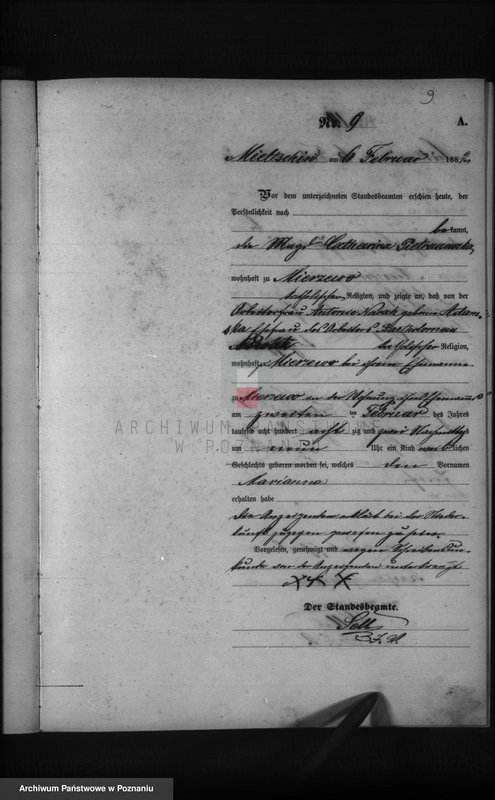 9
No. 9 A.
Mieltschin am 6 Februar 1882
Vor dem unterzeichneten Standesbeamten erschien heute, der
Persönlichkeit nach
bekannt,
die Magd Catharina
wohnhaft zu Mierzewo
katholischer Religion, und zeigte an, daß von der
Arbeiterfrau Antonie Nowak geborne Adam-
ska Ehefrau des Arbeiters
Nowak katholischer Religion,
wohnhaft Mierzewo bei ihrem Ehemanne
zu Mierzewo in der Wohnung ihres Ehemannes
am zweiten ten Februar des Jahres
tausend acht hundert acht zig und zwei Nachmittags
um neun Uhr ein Kind weiblichen
Geschlechts geboren worden sei, welches den Vornamen
Marianna
erhalten habe
Die Anzeigende erklärt bei der Nieder-
kunft zugegen gewesen zu sein
Vorgelesen, genehmigt und wegen Schreibensun-
kunde von der Anzeigenden unterkreuzt
XXX
Der Standesbeamte.
ARCHIWUM PAŃSTWOWE
W POZNANIU
Archiwum Państwowe w Poznaniu